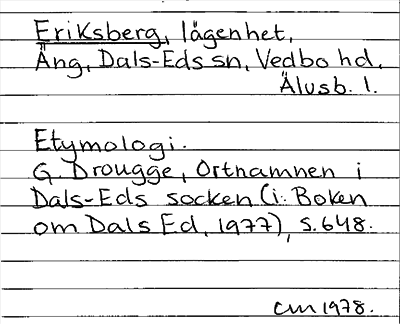 Eriksberg, lägenhet,
Äng, Dals-Eds sn, Vedbo hd,
Älvsb. l.
Etymologi.
G. Drougge, Ortnamnen i
Dals-Eds socken (i: Boken
om Dals Ed, 1977), s. 648.
cm 1978.